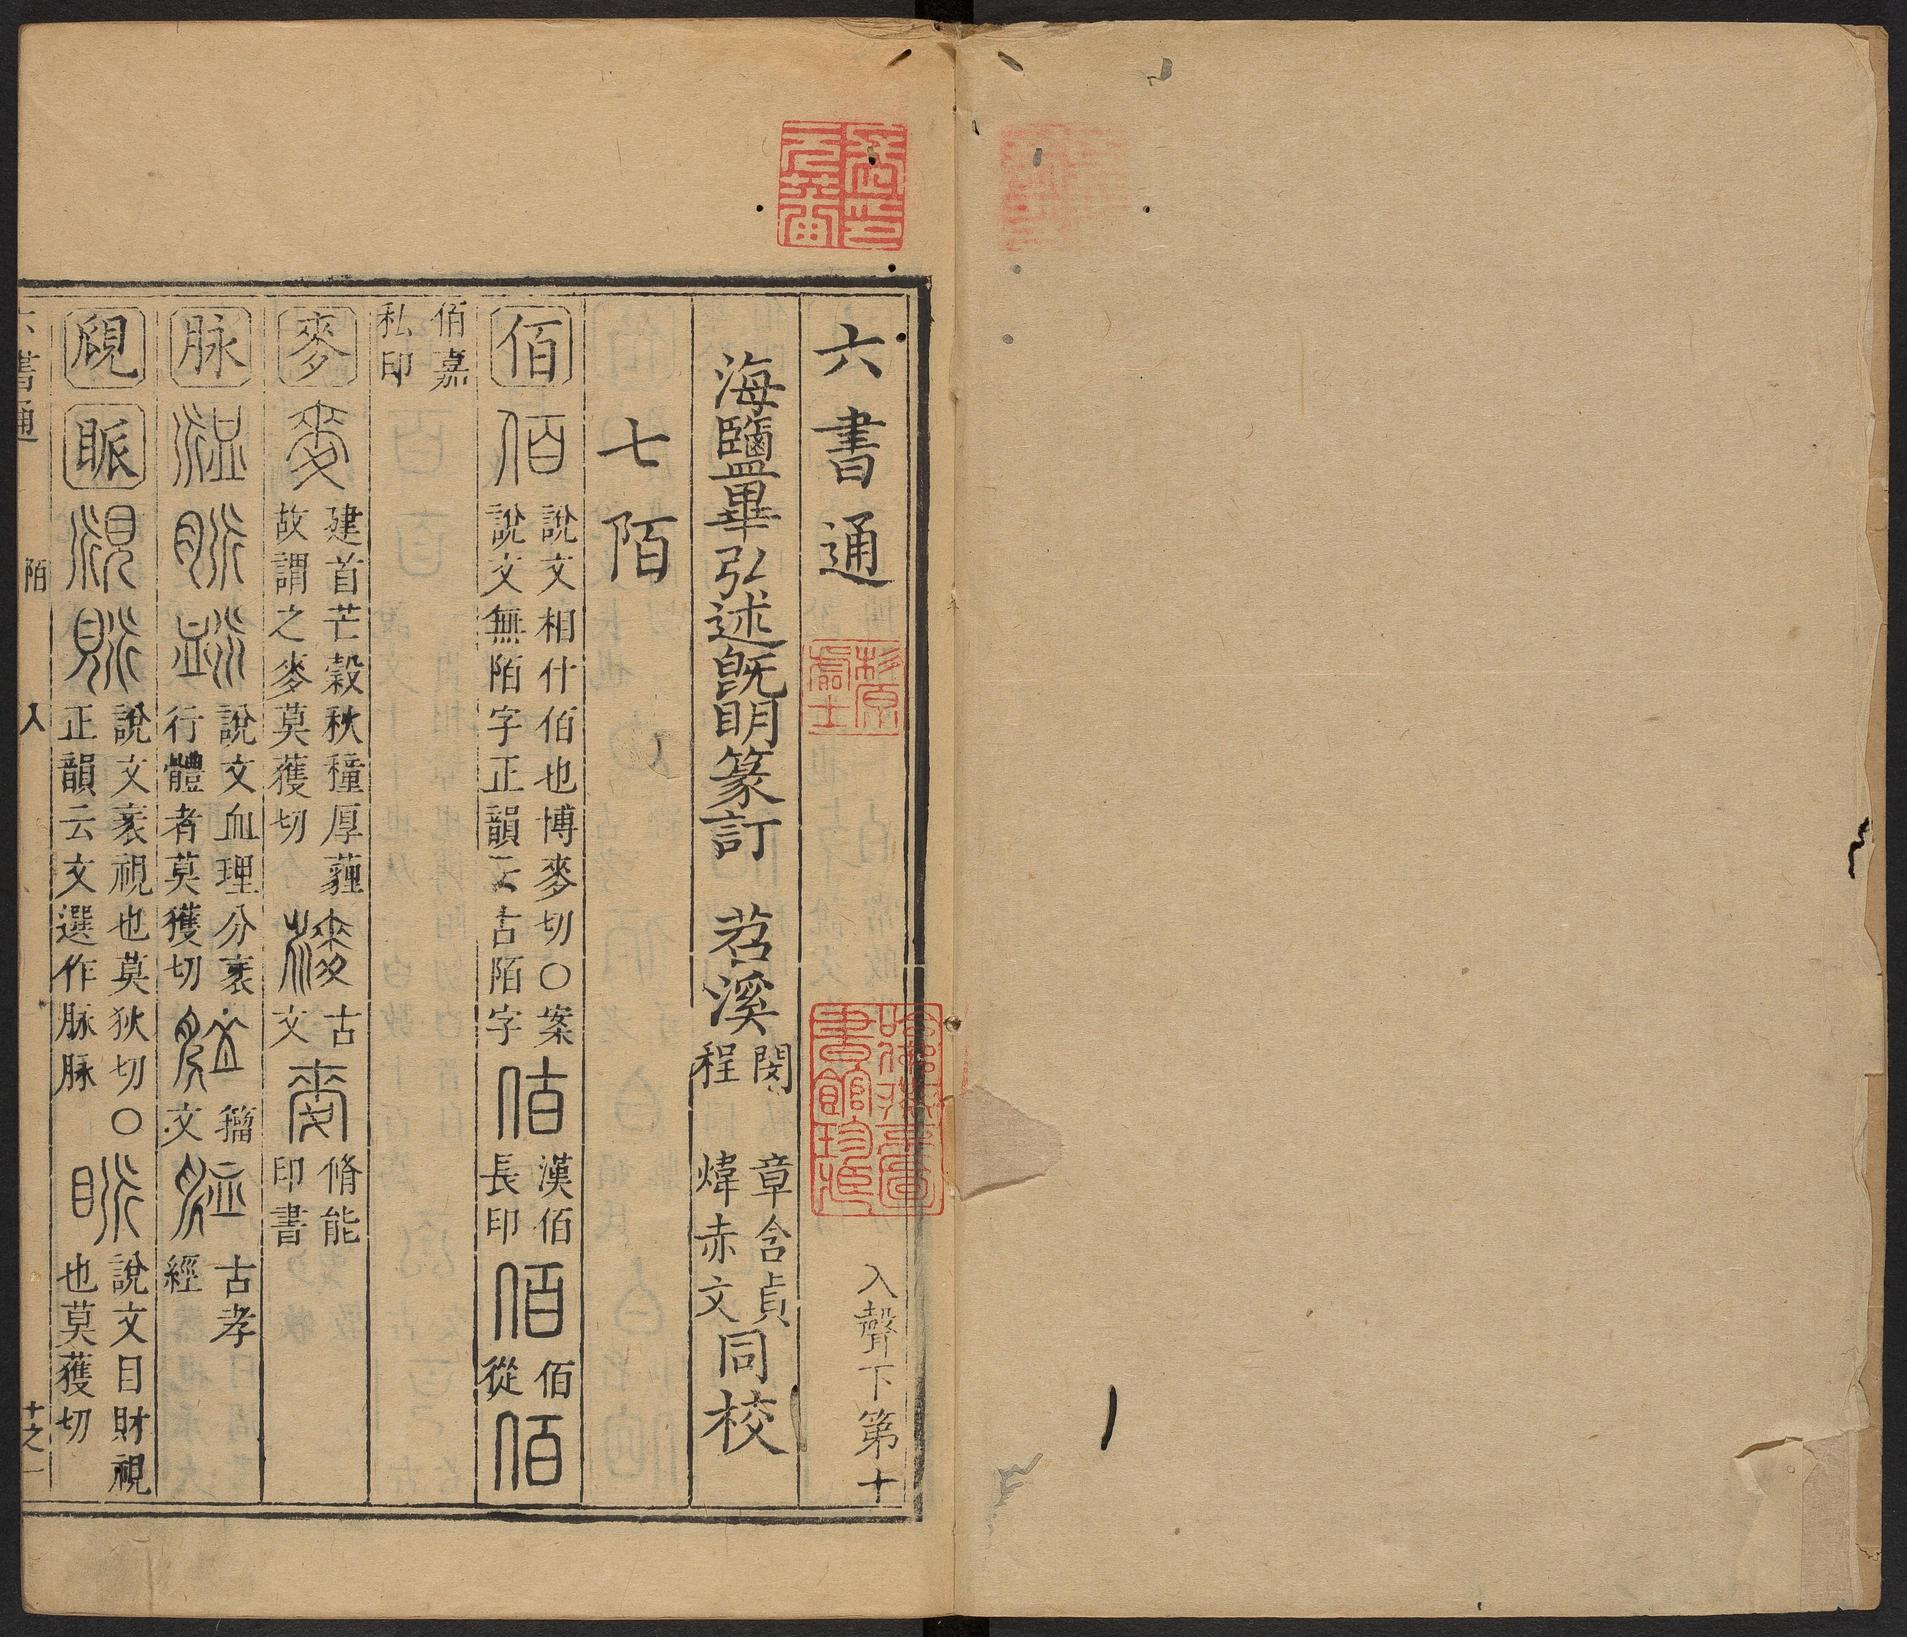 六書通
入聲下第十
海鹽畢弘述旣明篆訂 苕溪 閔章含貞 程煒赤文 同校
七陌
佰 佰 說文相什伯也博麥切○案說文無陌字正韻云古陌字 佰 漢佰長印 佰 佰從 佰
佰嘉私印
麥 麥 建首芒穀秋種厚薶故謂之麥莫獲切 古文 麥 脩能印書
脉 說文血理分衺行體者莫獲切 籀文 古孝經
覛 眽 說文衺視也莫狄切○正韻云文選作脉脉 說文目財視也莫獲切
六書通 陌 入 十之一
杉原
書館珍藏